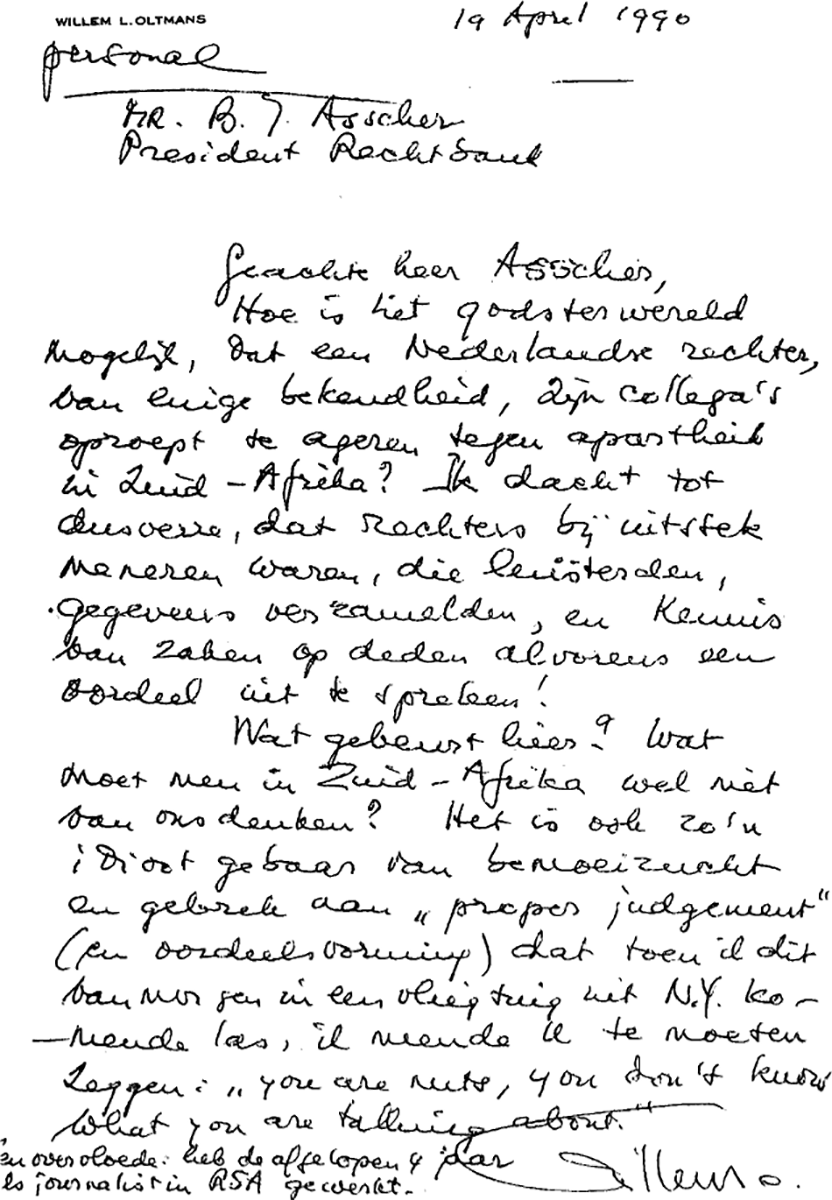 WILLEM L. OLTMANS
19 April 1990
personal
MR. B. J. Asscher
President Rechtbank
Geachte heer Asscher,
Hoe is het godsterwereld
mogelijk, dat een Nederlandse rechter,
van enige bekendheid, zijn collega's
oproept te ageren tegen apartheid
in Zuid-Afrika? Ik dacht tot
dusverre, dat rechters bij uitstek
meneren waren, die luisterden,
gegevens verzamelden, en kennis
van zaken op deden alvorens een
oordeel uit te spreken!
Wat gebeurt hier? Wat
moet men in Zuid-Afrika wel niet
van ons denken? Het is ook zo'n
idioot gebaar van bemoeizucht
en gebrek aan „proper judgement"
(en oordeelsvorming) dat toen ik dit
vanmorgen in een vliegtuig uit N.Y. ko-
-mende las, ik meende U te moeten
zeggen: „you are nuts, you don't know
what you are talking about."
Willem O.
Ten overvloede: heb de afgelopen 4 jaar
als journalist in RSA gewerkt.